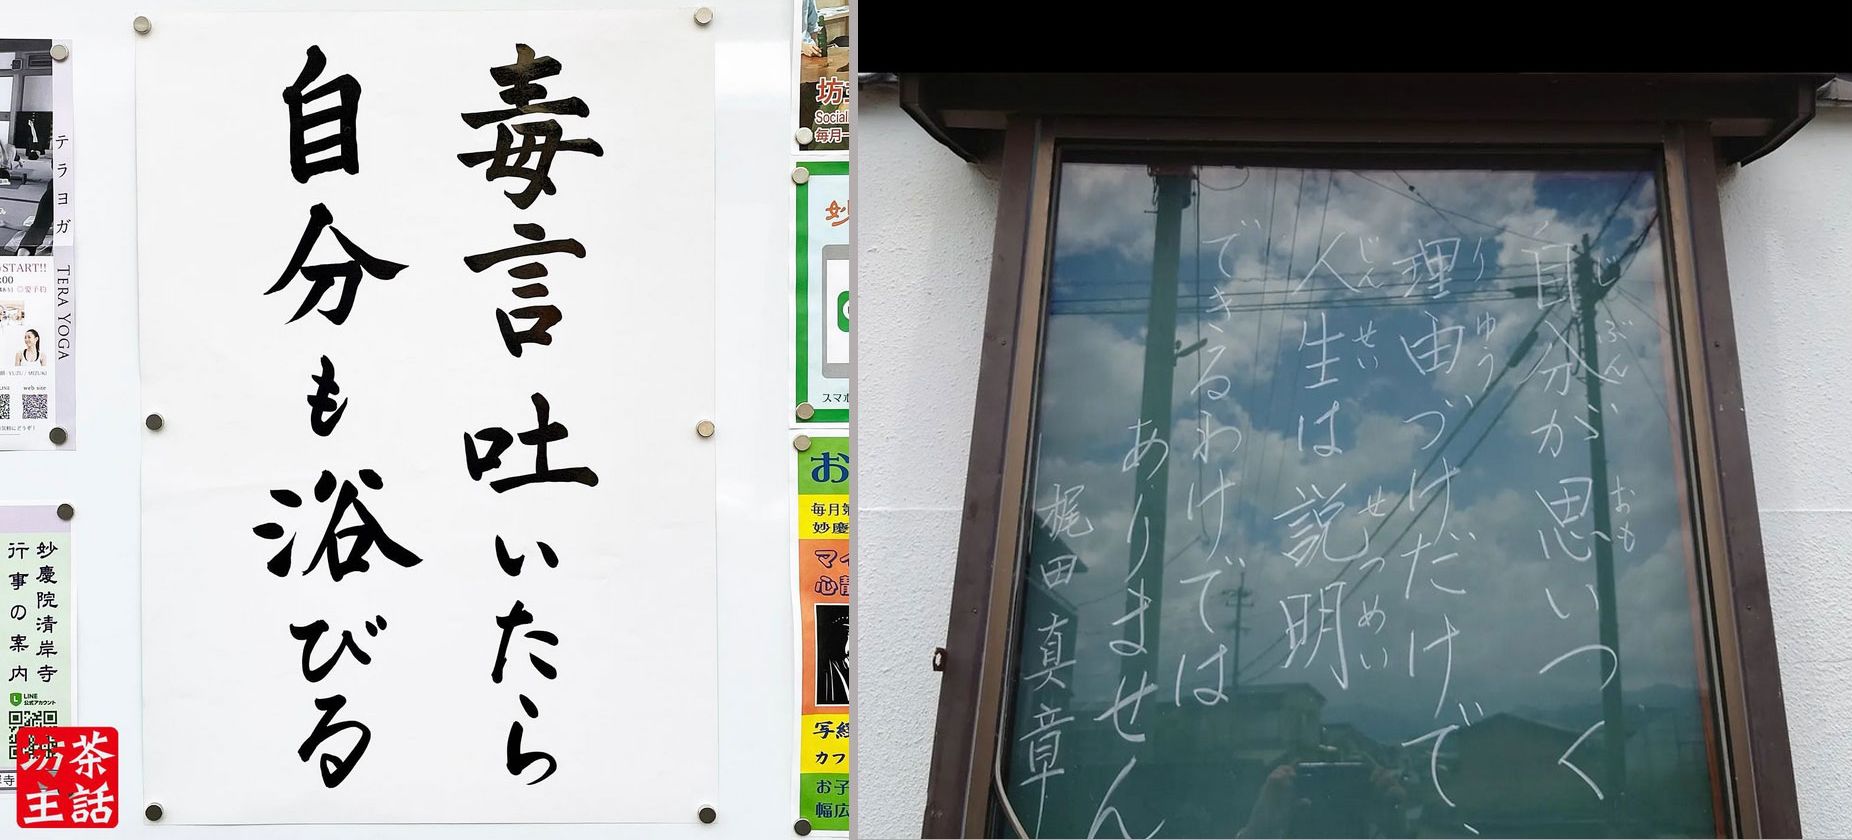 毒言吐いたら
自分も浴びる
テラヨガ
TERA YOGA
START!!
:00
LINE
web site
妙慶院清岸寺
行事の案内
LINE
公式アカウント
茶話
坊主
坊主
Social
毎月
妙
スマホ
お
毎月第
妙慶
マイ
心静
写経
カフ
お子
幅広
自分が思いつく
じぶん おも
理由づけだけで、
りゆう
人生は説明
じんせい せつめい
できるわけでは
ありません
梶田真章